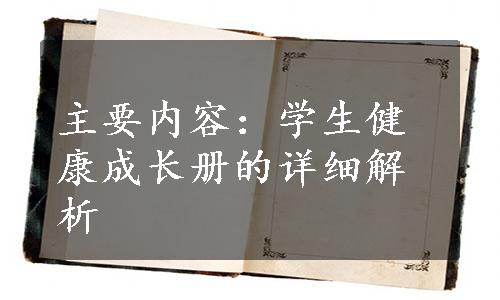 主要内容：学生健
康成长册的详细解
析